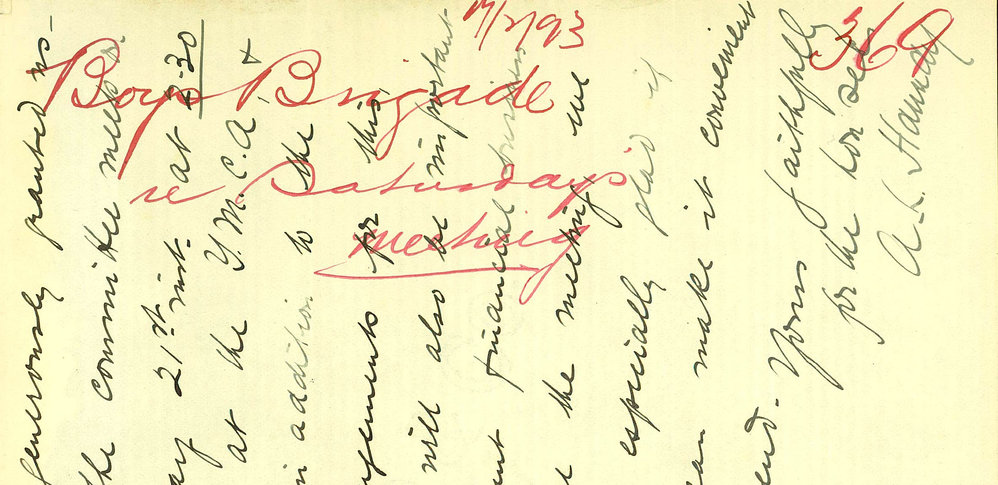 17/2/93
369
Boys Brigade
re Saturdays
meeting
generously granted us
the committee meets
21st inst. at 2-30
at the Y.M.C.A. &
in addition to the
for this
will also be important
financial business
the meeting we
especially glad if
make it convenient
Yours faithfully
for the hon sec
A. L. Hannay